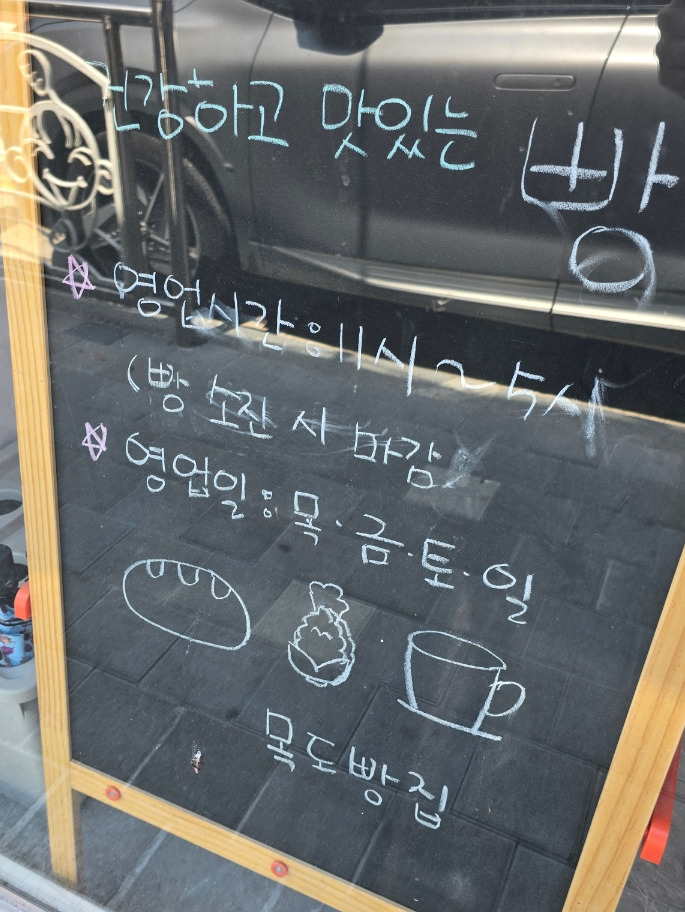 건강하고 맛있는 빵
영업시간 : 11시 ~ 5시
(빵 소진 시 마감
영업일 : 목·금·토·일
목도빵집